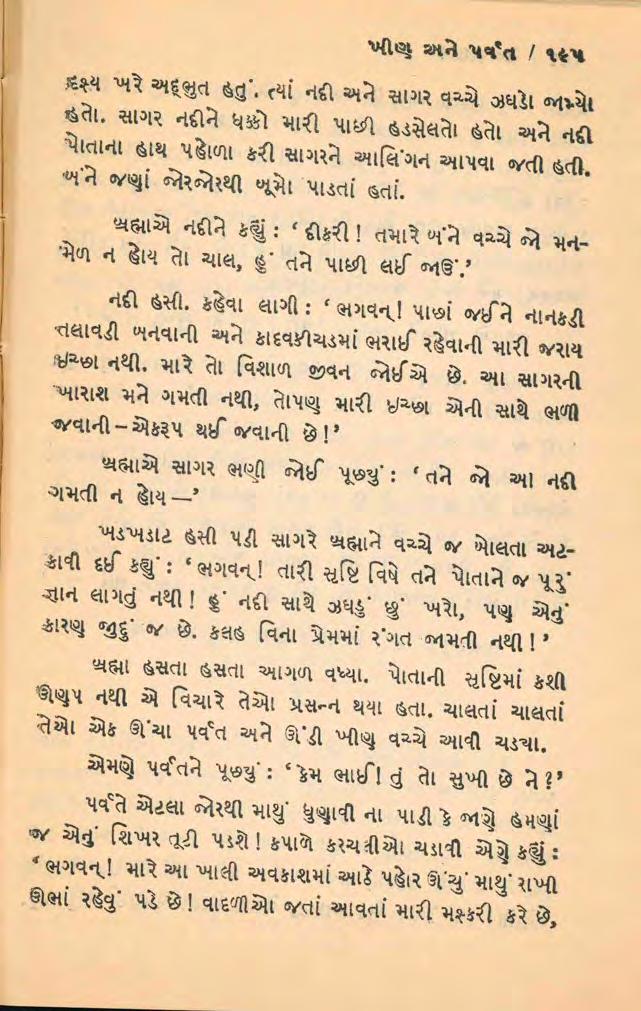 ખીણ અને પર્વત / ૧૯૫
દૃશ્ય ખરે અદ્ભુત હતું. ત્યાં નદી અને સાગર વચ્ચે ઝઘડો જામ્યો
હતો. સાગર નદીને ધક્કો મારી પાછી હડસેલતો હતો અને નદી
પોતાના હાથ પહોળા કરી સાગરને આલિંગન આપવા જતી હતી.
બંને જણાં જોરજોરથી બૂમો પાડતાં હતાં.
બ્રહ્માએ નદીને કહ્યું : ‘ દીકરી ! તમારે બંને વચ્ચે જો મન-
મેળ ન હોય તો ચાલ, હું તને પાછી લઈ જાઉં.’
નદી હસી. કહેવા લાગી : ‘ ભગવન્ ! પાછાં જઈને નાનકડી
તલાવડી બનવાની અને કાદવકીચડમાં ભરાઈ રહેવાની મારી જરાય
ઇચ્છા નથી. મારે તો વિશાળ જીવન જોઈએ છે. આ સાગરની
ખારાશ મને ગમતી નથી, તોપણ મારી ઇચ્છા એની સાથે ભળી
જવાની – એકરૂપ થઈ જવાની છે ! ’
બ્રહ્માએ સાગર ભણી જોઈ પૂછ્યું : ‘ તને જો આ નદી
ગમતી ન હોય —’
ખડખડાટ હસી પડી સાગરે બ્રહ્માને વચ્ચે જ બોલતા અટ-
કાવી દઈ કહ્યું : ‘ ભગવન્ ! તારી સૃષ્ટિ વિષે તને પોતાને જ પૂરું
જ્ઞાન લાગતું નથી ! હું નદી સાથે ઝઘડું છું ખરો, પણ એનું
કારણ જુદું જ છે. કલહ વિના પ્રેમમાં રંગત જામતી નથી ! ’
બ્રહ્મા હસતા હસતા આગળ વધ્યા. પોતાની સૃષ્ટિમાં કશી
ઊણપ નથી એ વિચારે તેઓ પ્રસન્ન થયા હતા. ચાલતાં ચાલતાં
તેઓ એક ઊંચા પર્વત અને ઊંડી ખીણ વચ્ચે આવી ચડ્યા.
એમણે પર્વતને પૂછ્યું : ‘ કેમ ભાઈ ! તું તો સુખી છે ને ? ’
પર્વતે એટલા જોરથી માથું ધુણાવી ના પાડી કે જાણે હમણાં
જ એનું શિખર તૂટી પડશે ! કપાળે કરચલીઓ ચડાવી એણે કહ્યું :
‘ ભગવન્ ! મારે આ ખાલી અવકાશમાં આઠે પહોર ઊંચું માથું રાખી
ઊભાં રહેવું પડે છે ! વાદળીઓ જતાં આવતાં મારી મશ્કરી કરે છે,